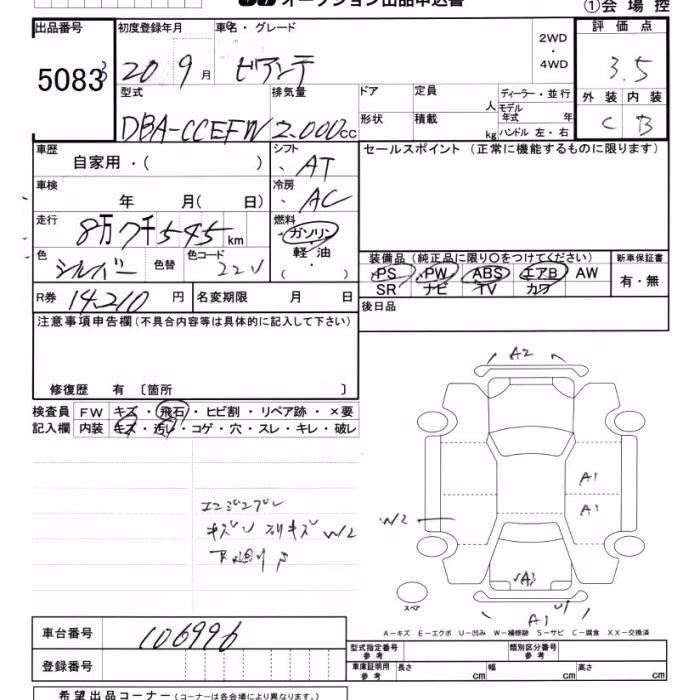 オークション出品申込書
①会場控
出品番号 初度登録年月 車名・グレード 2WD・4WD 評価点
5083 3 20 9月 ビアンテ 3.5
型式 排気量 ドア 定員 人 ディーラー・並行 外装 内装
DBA-CCEFW 2.000cc 形状 積載 kg モデル年式 年 C B
ハンドル 左・右
車歴 自家用・( ) シフト AT セールスポイント (正常に機能するものに限ります)
車検 年 月( 日) 冷房 AC
走行 8万7千545km 燃料 ガソリン・軽油・( )
色 シルバー 色替 色コード 22V
装備品 (純正品に限り○をつけてください) 新車保証書
PS PW ABS エアB AW 有・無
SR ナビ TV カワ
R券 14,210円 名変期限 月 日 後日品
注意事項申告欄(不具合内容等は具体的に記入して下さい)
修復歴 有 〔箇所 〕
検査員 FW キズ・飛石・ヒビ割・リペア跡・×要
記入欄 内装 キズ・汚レ・コゲ・穴・スレ・キレ・破レ
A2
A1
A1
W2
キズ スリキズ W2
A3
スペア
A1
U1
A-キズ E-エクボ U-凹み W-補修跡 S-サビ C-腐食 XX-交換済
車台番号 106996
登録番号
型式指定番号 参考 類別区分番号 参考
車庫証明用 参考 長さ cm 幅 cm 高さ cm
希望出品コーナー (コーナーは各会場により異なります。)